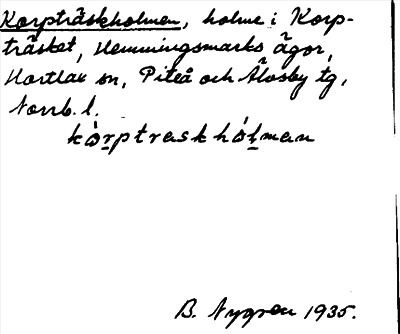 Korpträskholmen, holme i Korp-
träsket, Hemmingsmarks ägor,
Hortlax sn, Piteå och Älvsby tg,
Norrb. l.
kȯṟptraskhȯḻman
B. Nygren 1935.